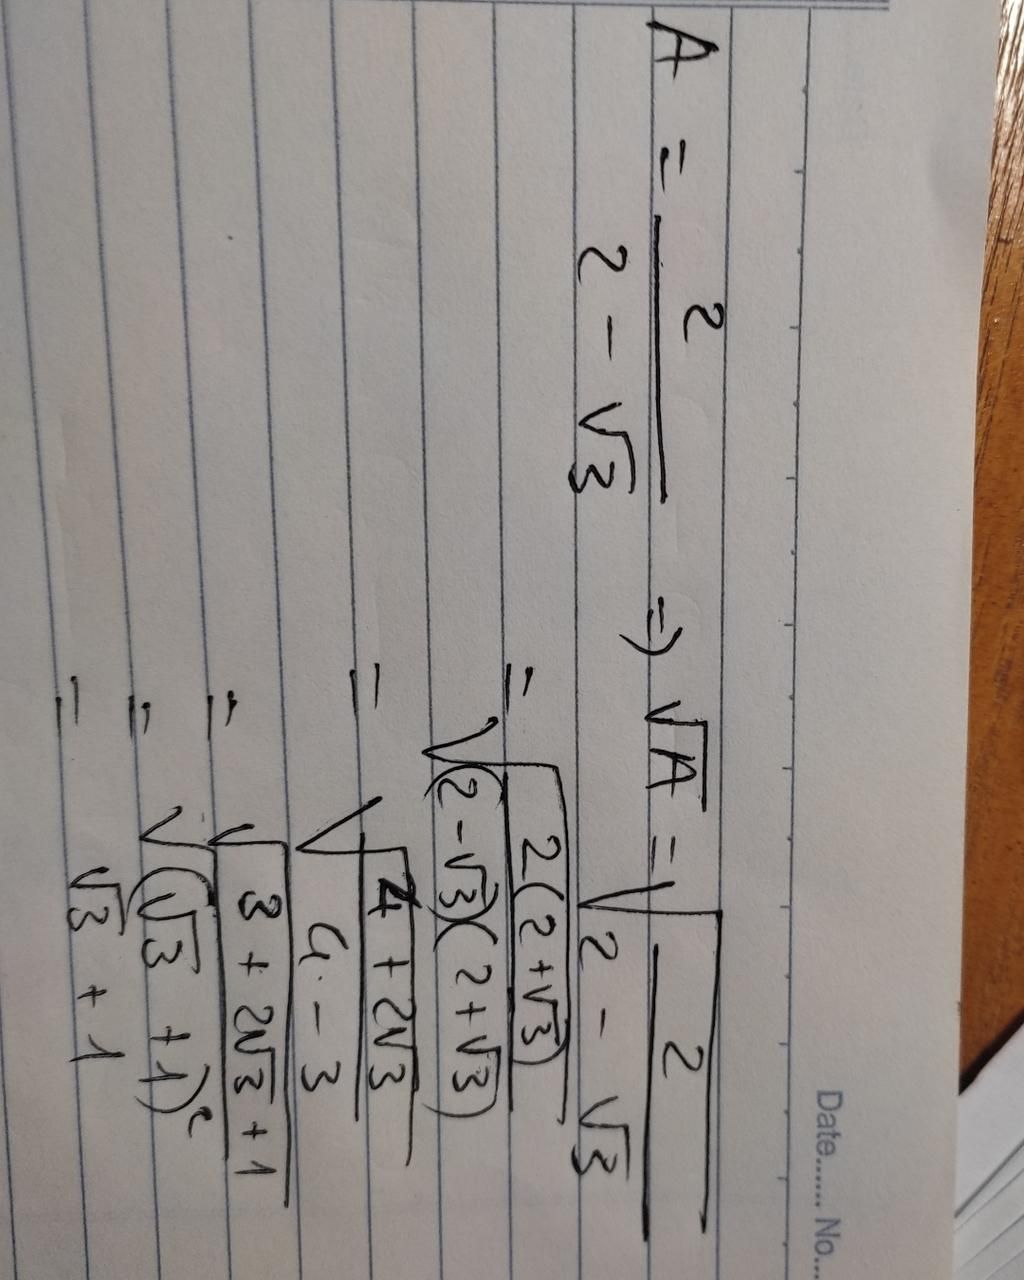 Date...... No...
A = 2 / (2 - √3) => √A = √(2 / (2 - √3))
= √(2(2+√3) / ((2-√3)(2+√3)))
= √((4 + 2√3) / (4 - 3))
= √(3 + 2√3 + 1)
= √((√3 + 1)²)
= √3 + 1